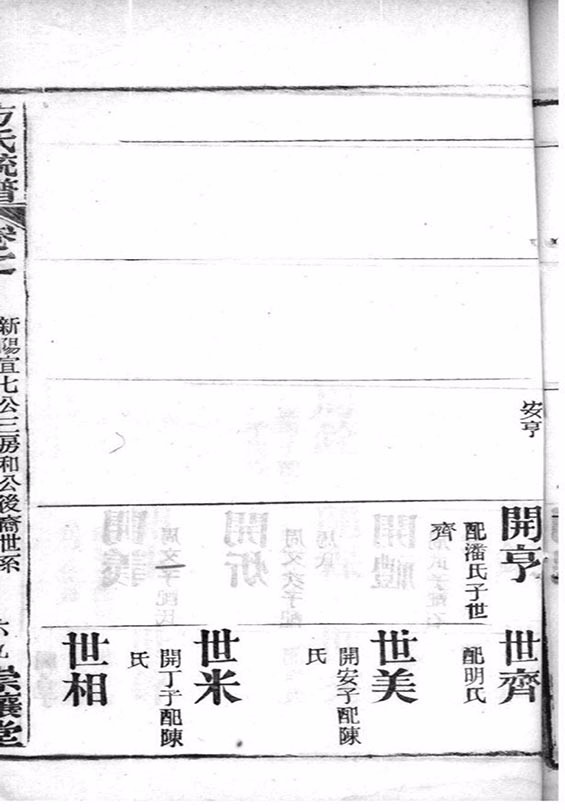 安亨
開亨
配潘氏子世
齊
世齊
配明氏
世美
開安子配陳
氏
世米
開丁子配陳
氏
世相
方氏統譜
卷之
新陽宣七公三房和公後裔世系
六九
崇讓堂